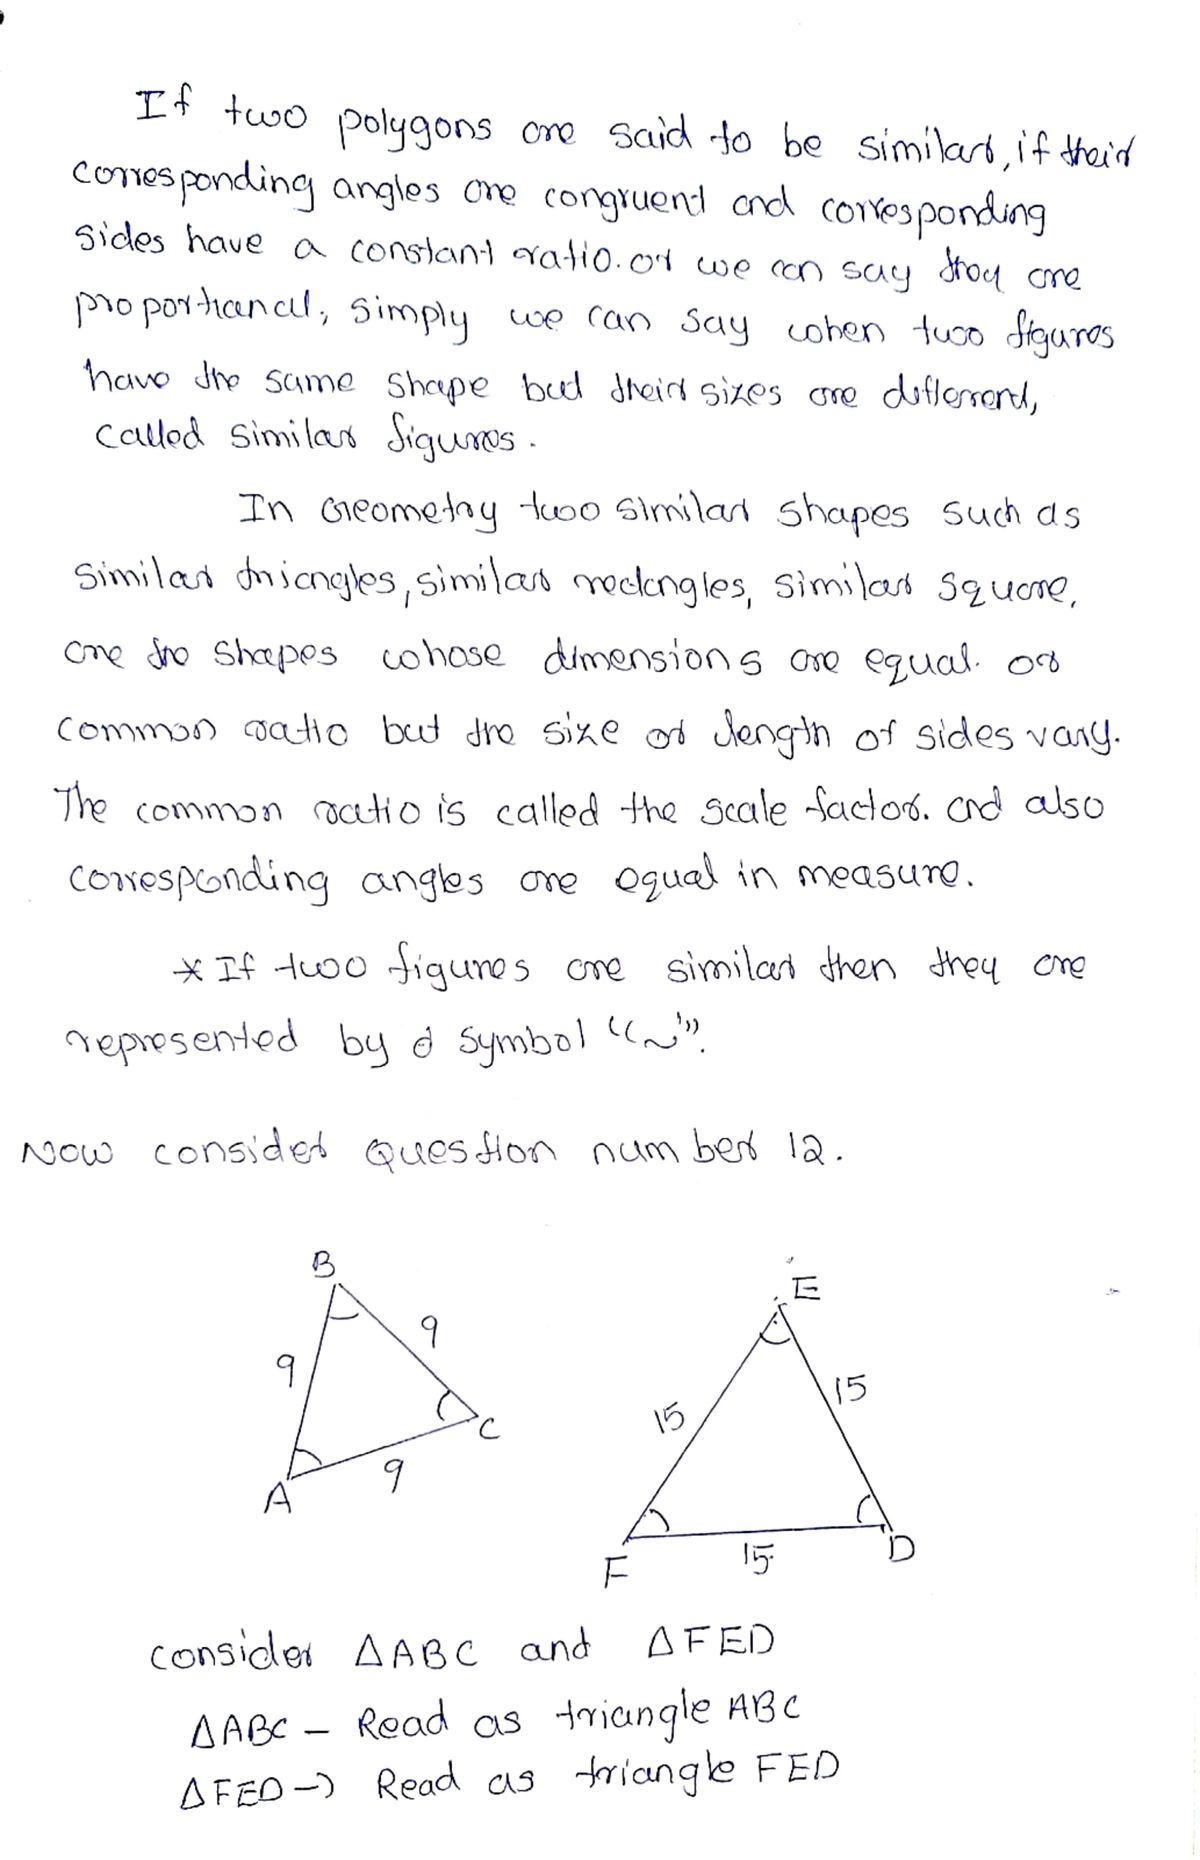 If two polygons are said to be similar, if their
corresponding angles are congruent and corresponding
sides have a constant ratio. or we can say they are
proportional, simply we can say when two figures
have the same shape but their sizes are different,
called similar figures.
In Geometry two similar shapes such as
similar triangles, similar rectangles, similar square,
are the shapes whose dimensions are equal. or
common ratio but the size or length of sides vary.
The common ratio is called the scale factor. and also
corresponding angles are equal in measure.
* If two figures are similar then they are
represented by a symbol "~".
Now consider Question number 12.
B
E
9
9
15
15
C
A
9
F
15
D
consider ΔABC and ΔFED
ΔABC – Read as triangle ABC
ΔFED → Read as triangle FED